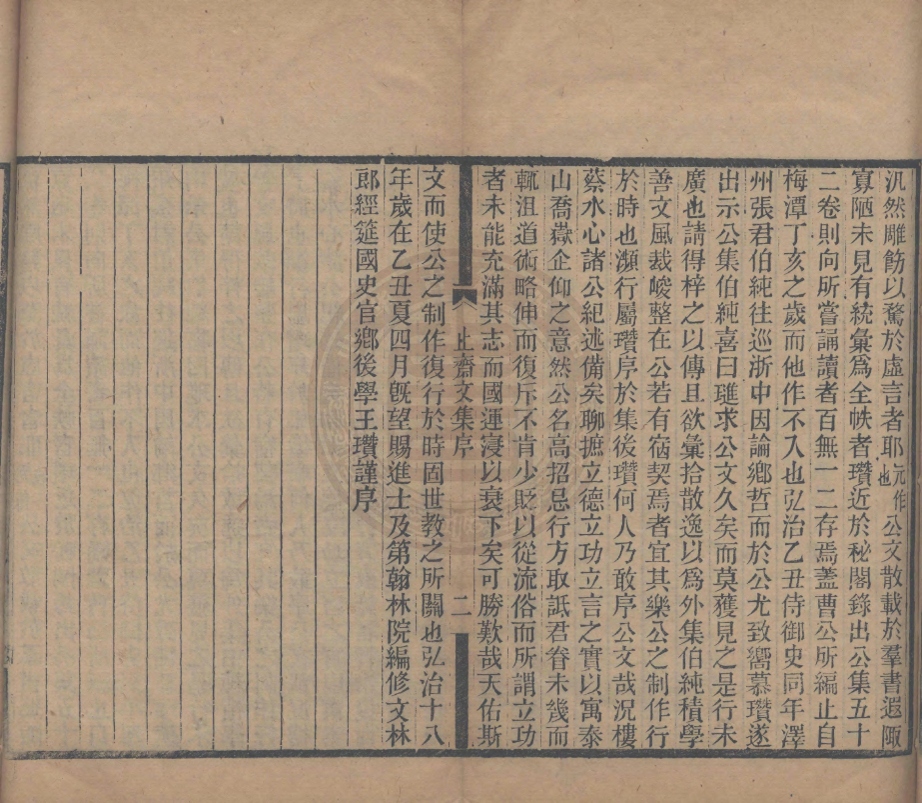 汎然雕飾以騖於虛言者耶元作也公文散載於羣書遐陬
寡陋未見有統彙爲全帙者瓚近於秘閣錄出公集五十
二卷則向所嘗誦讀者百無一二存焉蓋曹公所編止自
梅潭丁亥之歲而他作不入也弘治乙丑侍御史同年澤
州張君伯純往巡浙中因論鄉哲而於公尤致嚮慕瓚遂
出示公集伯純喜曰璡求公文久矣而莫獲見之是行未
廣也請得梓之以傳且欲彙拾散逸以爲外集伯純積學
善文風裁峻整在公若有宿契焉者宜其樂公之制作行
於時也瀕行屬瓚序於集後瓚何人乃敢序公文哉況樓
蔡水心諸公紀述備矣聊摭立德立功立言之實以寓泰
山喬嶽企仰之意然公名高招忌行方取詆君眷未幾而
輒沮道術略伸而復斥不肯少貶以從流俗而所謂立功
者未能充滿其志而國運寖以衰下矣可勝歎哉天佑斯
止齋文集序 二
文而使公之制作復行於時固世教之所關也弘治十八
年歲在乙丑夏四月旣望賜進士及第翰林院編修文林
郎經筵國史官鄉後學王瓚謹序